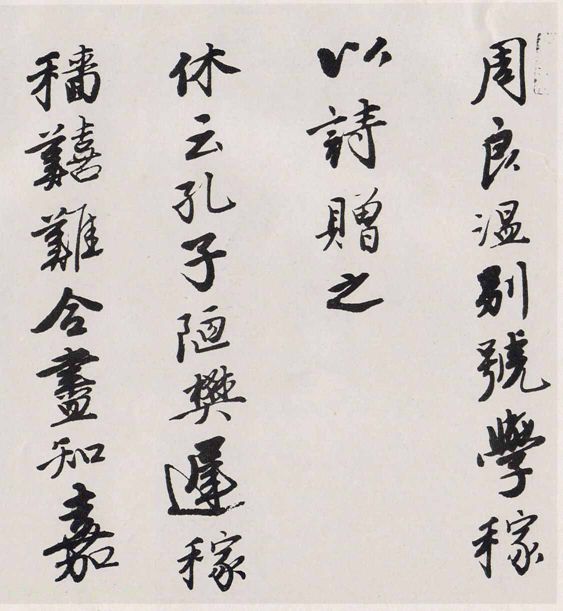 周良温別號學稼
以詩贈之
休云孔子陋樊遲稼
穡囏難合盡知嘉